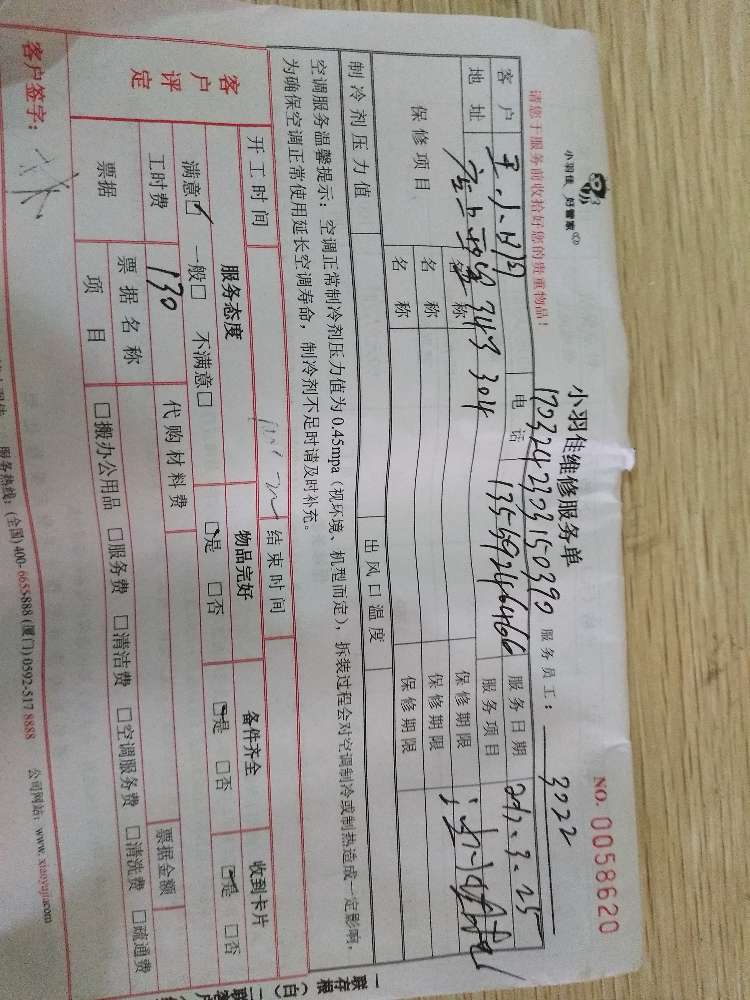 小羽佳 好管家
小羽佳维修服务单
NO. 0058620
1703242303150390
请您于服务前收拾好您的贵重物品!
服务员工: 3022
客户
电话 13559246466
服务日期
3.25
地址 343 304
服务项目
保修项目
名称
保修期限
名称
保修期限
名称
保修期限
制冷剂压力值
出风口温度
空调服务温馨提示:空调正常制冷剂压力值为0.45mpa(视环境、机型而定),拆装过程会对空调制冷或制热造成一定影响,
为确保空调正常使用延长空调寿命,制冷剂不足时请及时补充。
开工时间
结束时间
客户评定
服务态度
物品完好
备件齐全
收到卡片
满意☑ 一般□ 不满意□
☑是 □否
☑是 □否
☑是 □否
工时费 130
代购材料费
票据金额
票据
票据名称
项目
□搬办公用品 □服务费 □清洁费 □空调服务费 □清洗费 □疏通费
客户签字:
服务热线:(全国)400-6655-888 (厦门)0592-517 8888
公司网站:www.xiaoyujia.com
一联存根(白)二联客户